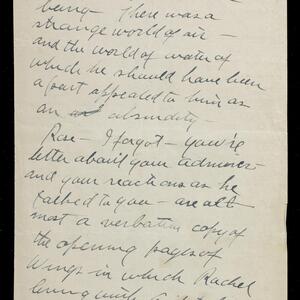 being – There was a
strange world of air –
and the world of water of
which he should have been
a part appealed to him as
an absurdity –
Rose – I forgot – you're
letter about your admirer
and your reactions as he
talked to you – are al-
most a verbatim copy of
the opening pages of
Wings in which Rachel